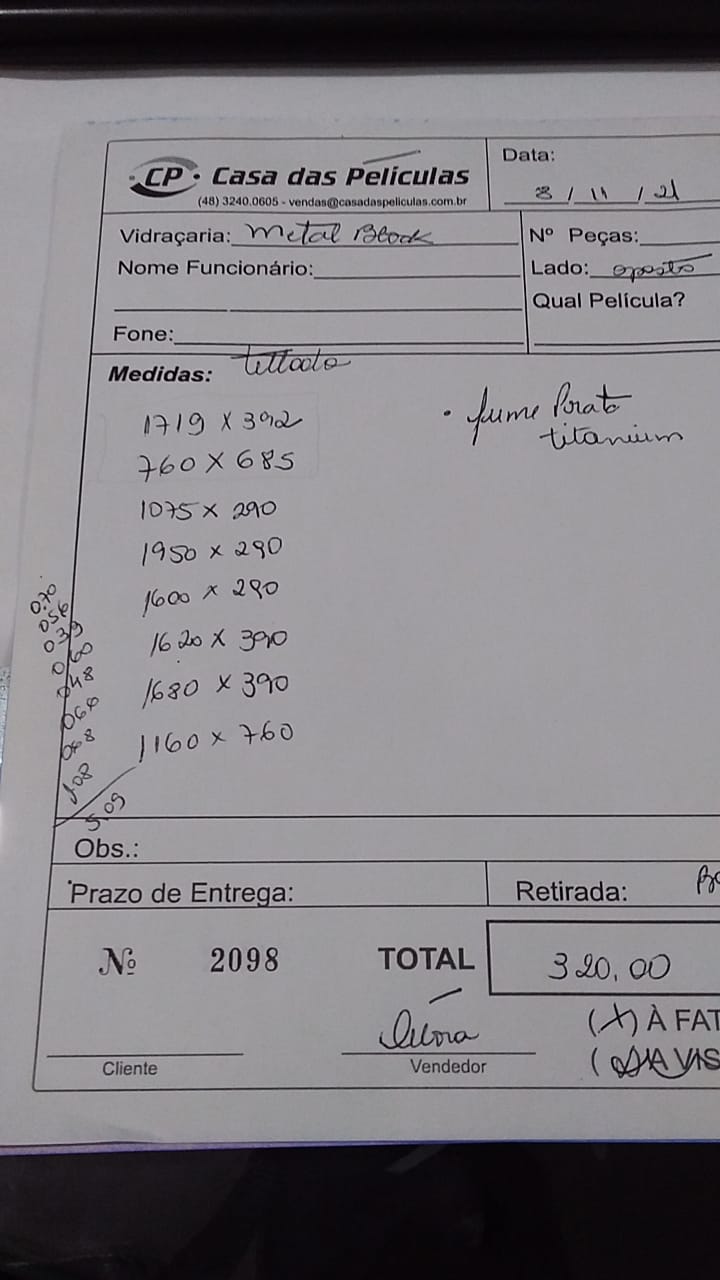 CP · Casa das Películas
(48) 3240.0605 - vendas@casadaspeliculas.com.br
Data:
8 / 11 / 21
Vidraçaria: Metal Block
Nº Peças:
Nome Funcionário:
Lado: oposto
Qual Película?
Fone:
Medidas:
1719 x 392
760 x 685
1075 x 290
1950 x 290
1600 x 290
1620 x 390
1680 x 390
1160 x 760
· fume Prata
titanium
0.70
056
039
060
048
068
068
108
5.09
Obs.:
Prazo de Entrega:
Retirada:
Nº 2098
TOTAL
320,00
(X) À FAT
( ) A VIS
Cliente
Vendedor